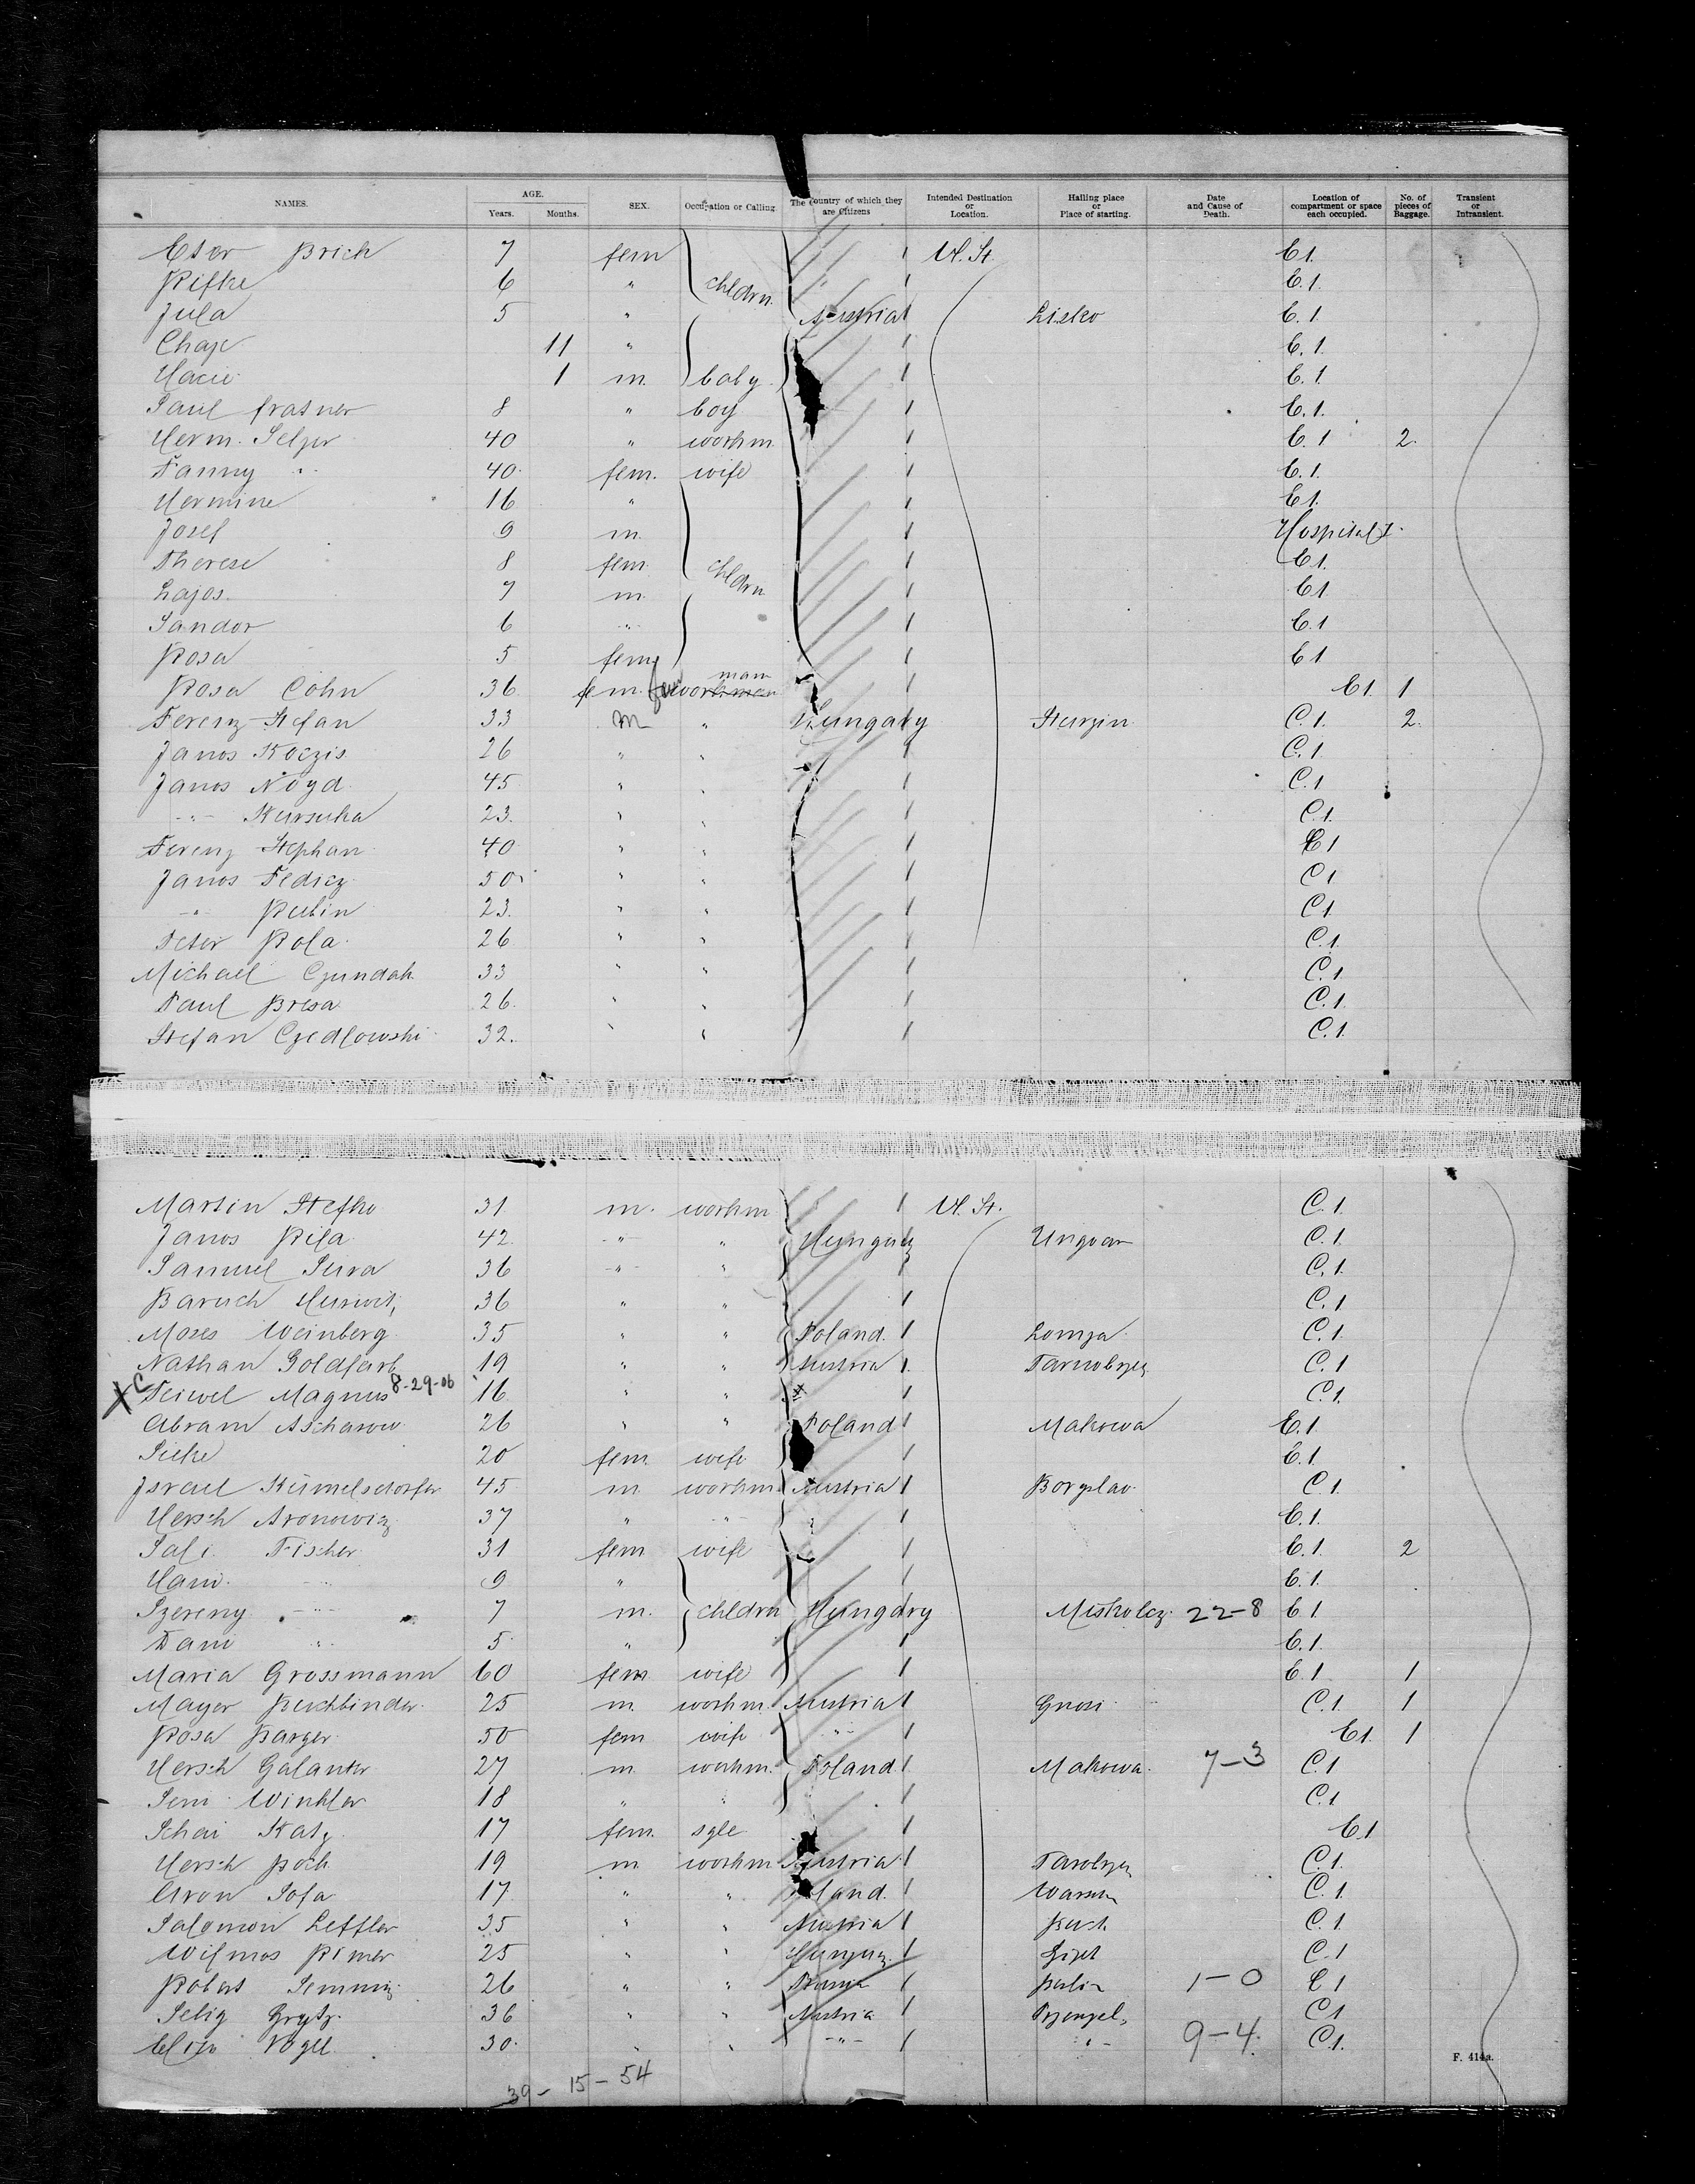 NAMES. AGE. Years. Months. SEX. Occupation or Calling. The Country of which they are Citizens Intended Destination or Location. Hailing place or Place of starting. Date and Cause of Death. Location of compartment or space each occupied. No. of pieces of Baggage. Transient or Intransient.
Ester Brich 7 fem U. St. E1.
Rifke 6 " chldrn E.1.
Jula 5 " Austria 1 Lisko E.1.
Chaje 11 " 1 E.1.
1 m. baby 1 E.1.
8 " boy 1 E.1.
Herm. Selzer 40 " workm 1 E.1 2.
Fanny " 40. fem. wife 1 E.1.
Hermine 16 " 1 E1.
Josef 9 m. 1 Hospital
Therese 8 fem. chldrn 1 E1.
Lajos. 7 m. 1 E1
Sandor 6 " 1 E.1
Rosa 5 fem 1 E1
Rosa Cohn 36. fem. man E1. 1
Ferenz Stefan 33 m " Hungary C.1. 2.
Janos Koczis 26 " " 1 C.1
Janos Noyd 45 " " 1 C.1
-"- 23. " " 1 C.1.
Ferenz Stephan 40 " " 1 E1
Janos Fedicz 50 " " 1 C1
-"- Rubin 23. " " 1 C1.
Peter Rola 26 " " 1 C.1.
Michael Czundak 33 " " 1 C.1
Paul Bresa 26. " " 1 C.1.
Stefan Czedlowski 32. " " 1 C.1.
Martin Stefko 31. m. workm 1 U. St. C.1.
Janos Rila 42. -"- " Hungary Ungvar C.1.
Samuel Sura 36 -"- " 1 C.1.
Baruch Hurwitz 36 " " 1 C.1
Moses Weinberg 35 " " Poland. 1 Lomza C.1.
Nathan Goldfarb 19 " " Austria 1. C.1
X C Feiwel Magnus 8-29-06 16 " " x 1 C.1.
Abram Ascharow 26 " " Poland 1 Makowa E.1.
20 fem. wife 1 E.1.
Israel Kümelsdorfer 45 m workm. Austria 1 Boryslav C1.
Hersch Aronowicz 37 " -"- " 1 E.1.
Sali Fischer 31 fem wife 1 E.1. 2
Hani. -"- 9 " 1 E.1.
Szereny -"- 7 m. chldrn Hungary Miskolcz. 22-8 E1
Dani " 5 " 1 E.1.
Maria Grossmann 60 fem wife 1 E.1 1
Mayer Buchbinder 25 m. workm. Austria 1 C.1. 1
Rosa Barger 50 fem wife -"- 1 E1. 1
Hersch Galanter 27 m workm. Poland 1. Makowa. 7-3 C.1
Winkler 18 " " 1 C.1
Schai Katz 17 fem. sgle 1 E.1
Hersch 19 m workm Austria 1 C.1.
Aron Sofa 17. " " Poland. 1 Warsaw C.1.
Salomon Leffler 35 " " Austria 1 C.1
Wilmos 25 " " 1 C.1
Robert 26 " " 1 Berlin 1-0 E1
Selig 36 " " Austria 1 C1
Vogel 30. " " -"- 1 -"- 9-4. C.1.
39 - 15 - 54
F. 414a.